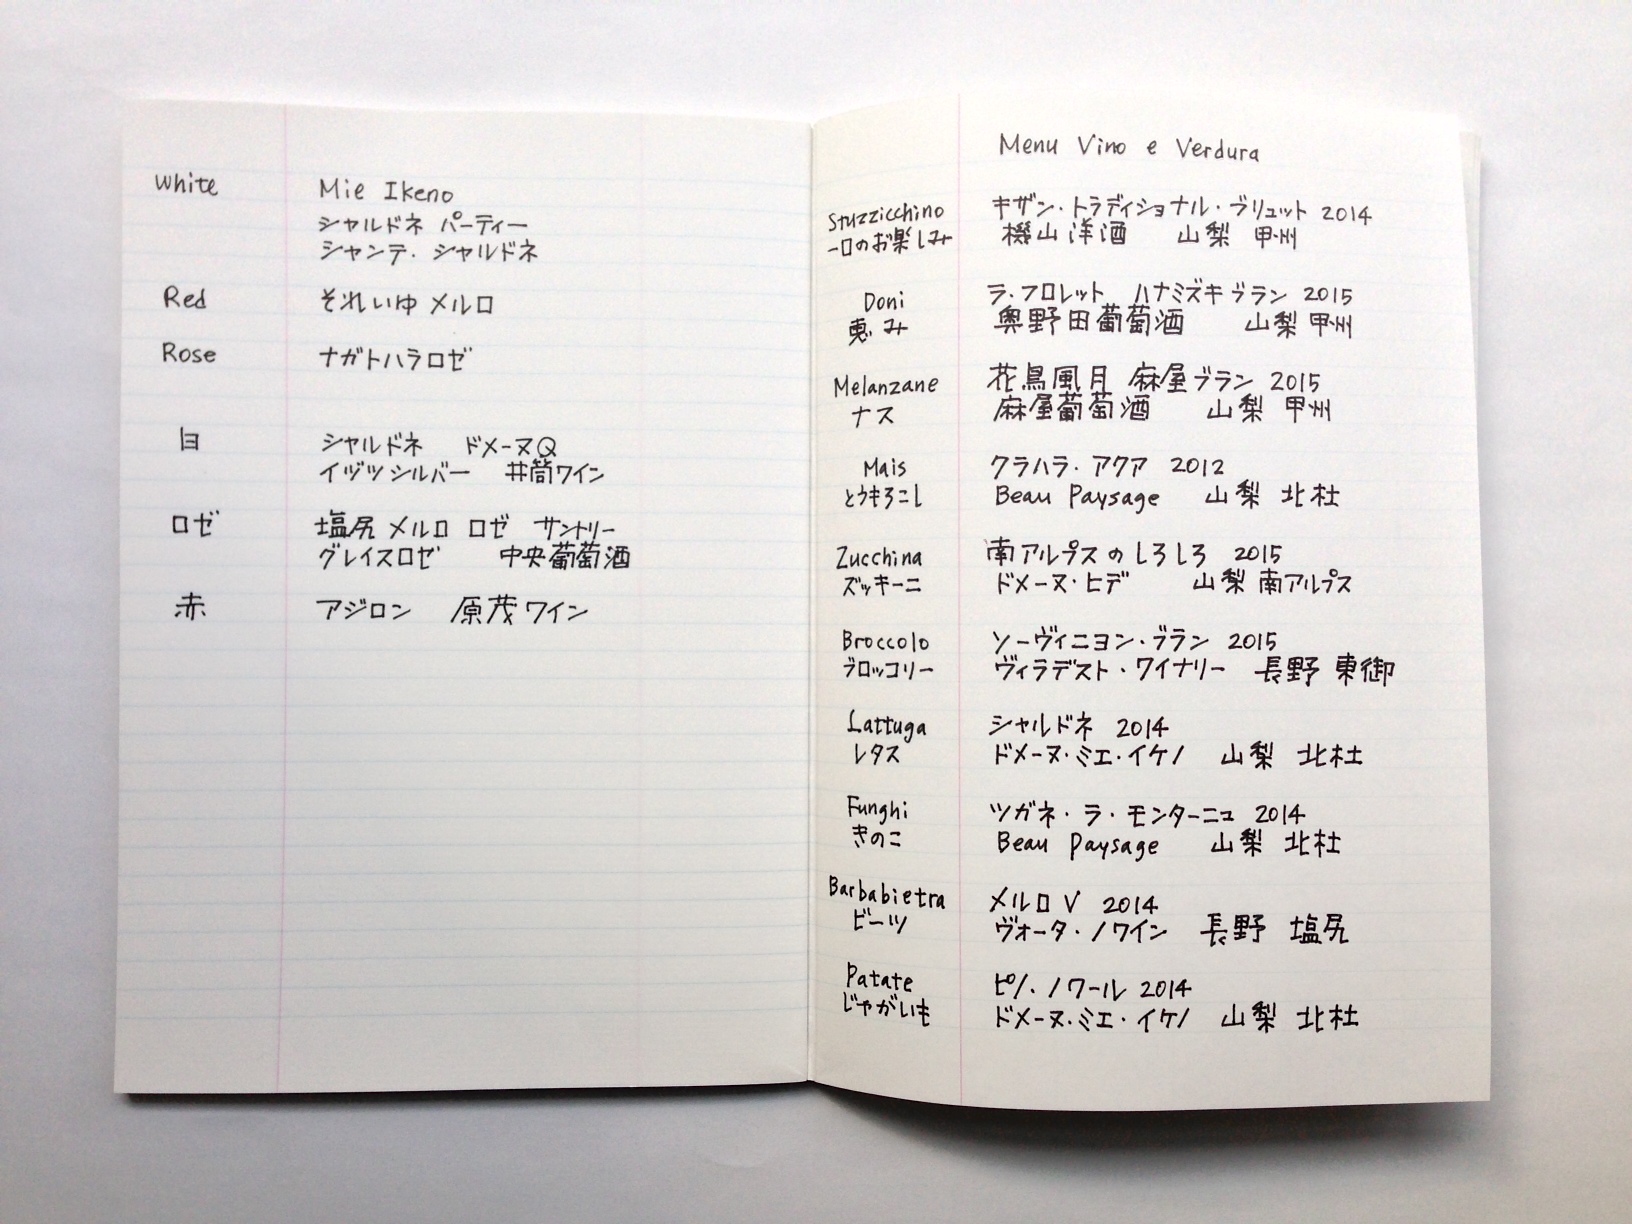 White Mie Ikeno
シャルドネ パーティー
シャンテ・シャルドネ
Red それいゆ メルロ
Rose ナガトハラロゼ
白 シャルドネ ドメーヌQ
イヅツシルバー 井筒ワイン
ロゼ 塩尻メルロ ロゼ サントリー
グレイスロゼ 中央葡萄酒
赤 アジロン 原茂ワイン
Menu Vino e Verdura
Stuzzicchino キザン・トラディショナル・ブリュット 2014
一口のお楽しみ 機山洋酒 山梨 甲州
Doni ラ・フロレット ハナミズキブラン 2015
恵み 奥野田葡萄酒 山梨 甲州
Melanzane 花鳥風月 麻屋ブラン 2015
ナス 麻屋葡萄酒 山梨 甲州
Mais クラハラ・アクア 2012
とうもろこし Beau Paysage 山梨 北杜
Zucchina 南アルプスのしろしろ 2015
ズッキーニ ドメーヌ・ヒデ 山梨 南アルプス
Broccolo ソーヴィニヨン・ブラン 2015
ブロッコリー ヴィラデスト・ワイナリー 長野 東御
Lattuga シャルドネ 2014
レタス ドメーヌ・ミエ・イケノ 山梨 北杜
Funghi ツガネ・ラ・モンターニュ 2014
きのこ Beau Paysage 山梨 北杜
Barbabietra メルロV 2014
ビーツ ヴォータ・ノワイン 長野 塩尻
Patate ピノ・ノワール 2014
じゃがいも ドメーヌ・ミエ・イケノ 山梨 北杜